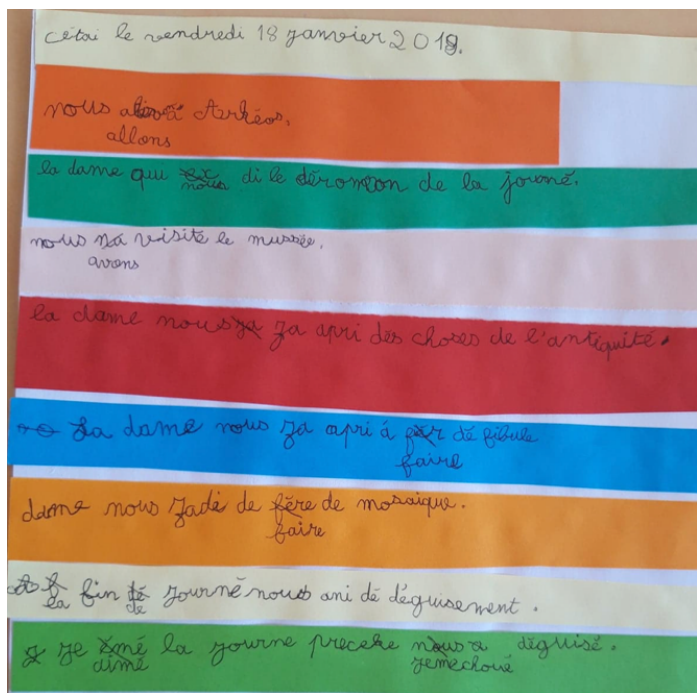 cétai le vendredi 18 janvier 2019.
nous à Arkéos,
allons
la dame qui di le déromon de la journé.
nous
nous za visité le mussée,
avons
la dame nous za za apri dès choses de l'antiquité.
la dame nous za apri à fèr dé fibule
faire
dame nous zadé de fère de mosaique.
faire
fin dé journé nous ani dé déguisement.
la de
je èmé la journe preceke nous a déguisé.
aimé jemechoué